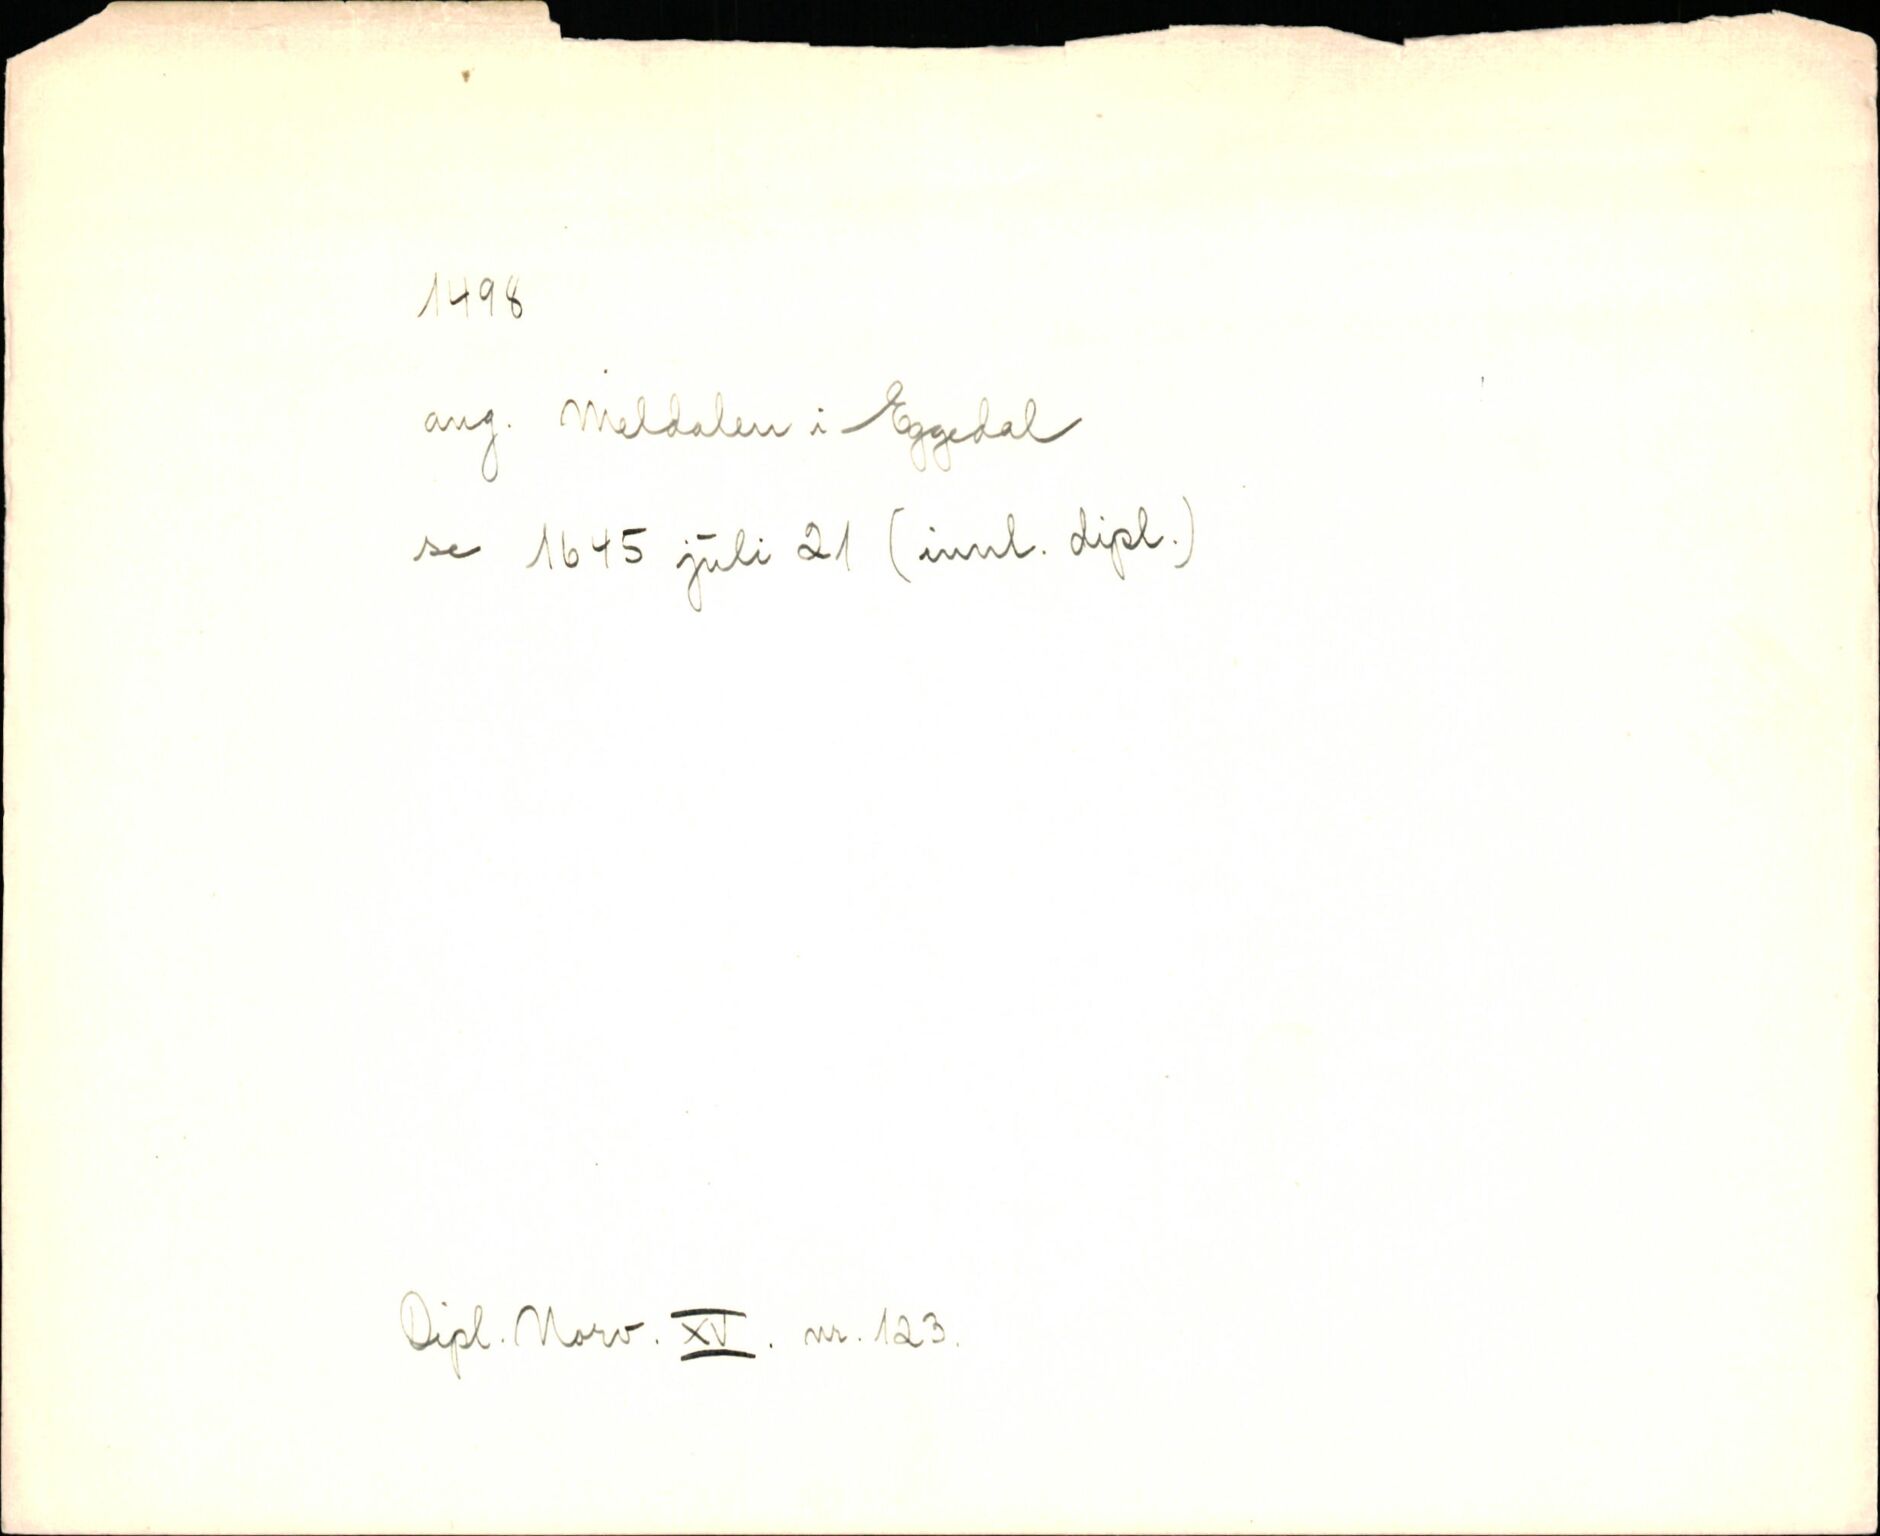 1498
ang. Meldalen i Eggedal
se 1645 juli 21 (innl. dipl.)
Dipl. Norv. XV. nr. 123.